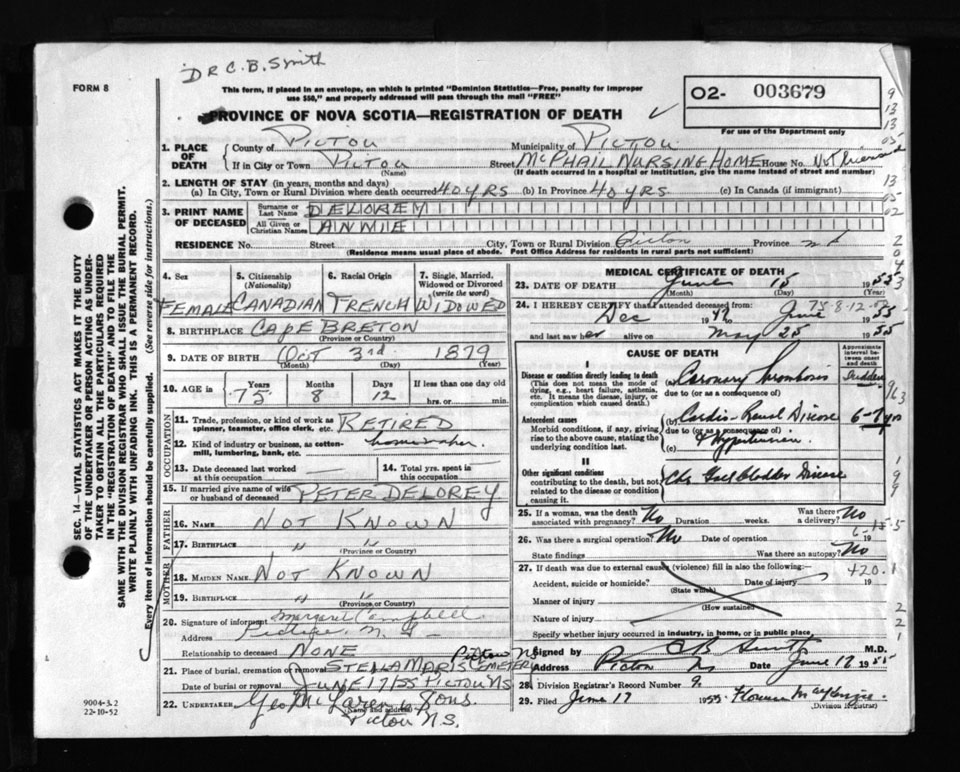 DR C. B. Smith
FORM 8
This form, if placed in an envelope, on which is printed "Dominion Statistics—Free, penalty for improper
use $50," and properly addressed will pass through the mail "FREE"
PROVINCE OF NOVA SCOTIA—REGISTRATION OF DEATH
O2- 003679
For use of the Department only
1. PLACE OF DEATH
County of Pictou Municipality of Pictou
If in City or Town Pictou Street McPhail Nursing Home House No.
(Name) (If death occurred in a hospital or institution, give the name instead of street and number)
2. LENGTH OF STAY (in years, months and days)
(a) In City, Town or Rural Division where death occurred 40 yrs (b) In Province 40 yrs (c) In Canada (if immigrant)
3. PRINT NAME OF DECEASED
Surname or Last Name DELOREY
All Given or Christian Names ANNIE
RESIDENCE No. Street City, Town or Rural Division Pictou Province N S
(Residence means usual place of abode. Post Office Address for residents in rural parts not sufficient)
4. Sex 5. Citizenship (Nationality) 6. Racial Origin 7. Single, Married, Widowed or Divorced (write the word)
FEMALE CANADIAN FRENCH WIDOWED
8. BIRTHPLACE CAPE BRETON
(Province or Country)
9. DATE OF BIRTH Oct 3rd 1879
(Month) (Day) (Year)
10. AGE in Years Months Days If less than one day old
75 8 12 hrs. or min.
OCCUPATION
11. Trade, profession, or kind of work as spinner, teamster, office clerk, etc. RETIRED
12. Kind of industry or business, as cotton-mill, lumbering, bank, etc. homemaker.
13. Date deceased last worked at this occupation —
14. Total yrs. spent in this occupation —
15. If married give name of wife or husband of deceased PETER DELOREY
FATHER
16. NAME NOT KNOWN
17. BIRTHPLACE " "
(Province or Country)
MOTHER
18. MAIDEN NAME NOT KNOWN
19. BIRTHPLACE " "
(Province or Country)
20. Signature of informant Margaret Campbell
Address
Relationship to deceased NONE
21. Place of burial, cremation or removal STELLA MARIS CEMETERY Pictou NS
Date of burial or removal JUNE 17/55 PICTOU NS
22. UNDERTAKER Geo McLaren & Sons.
(Name and address)
Pictou N.S.
MEDICAL CERTIFICATE OF DEATH
23. DATE OF DEATH June 15 1955
(Month) (Day) (Year)
75-8-12
24. I HEREBY CERTIFY that I attended deceased from:
Dec June 1955
and last saw her alive on May 25 1955
CAUSE OF DEATH
Approximate interval between onset and death
I
Disease or condition directly leading to death (a) Coronary Thrombosis Sudden
(This does not mean the mode of dying, e.g., heart failure, asthenia, etc. It means the disease, injury, or complication which caused death.)
due to (or as a consequence)
Antecedent causes (b) Cardio-Renal Disease 6-7 yrs
Morbid conditions, if any, giving rise to the above cause, stating the underlying condition last.
due to (or as a consequence)
(c) & Hypertension
II
Other significant conditions Chr Gall bladder Disease
contributing to the death, but not related to the disease or condition causing it.
25. If a woman, was the death associated with pregnancy? No Duration weeks. Was there a delivery? No
26. Was there a surgical operation? No Date of operation 19
State findings Was there an autopsy? No
27. If death was due to external causes (violence) fill in also the following:—
Accident, suicide or homicide? Date of injury 19
(State which)
Manner of injury
(How sustained)
Nature of injury
420.1
Specify whether injury occurred in industry, in home, or in public place
Signed by C B Smith M.D.
Address Pictou NS Date June 17 1955
28. Division Registrar's Record Number 9
29. Filed June 17 1955 Florence
(Division Registrar)
SEC. 14—VITAL STATISTICS ACT MAKES IT THE DUTY
OF THE UNDERTAKER OR PERSON ACTING AS UNDERTAKER TO OBTAIN ALL THE PARTICULARS REQUIRED
IN THE "REGISTRATION OF DEATH" AND TO FILE THE
SAME WITH THE DIVISION REGISTRAR WHO SHALL ISSUE THE BURIAL PERMIT.
WRITE PLAINLY WITH UNFADING INK. THIS IS A PERMANENT RECORD.
Every item of information should be carefully supplied. (See reverse side for instructions.)
9004-3.2
22-10-52